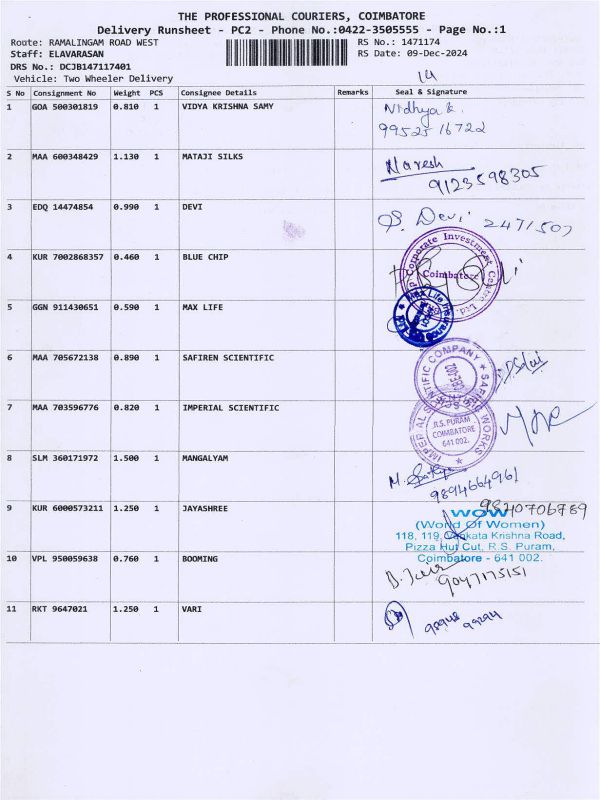 THE PROFESSIONAL COURIERS, COIMBATORE
Delivery Runsheet - PC2 - Phone No.:0422-3505555 - Page No.:1
Route: RAMALINGAM ROAD WEST
RS No.: 1471174
Staff: ELAVARASAN
RS Date: 09-Dec-2024
DRS No.: DCJB147117401
Vehicle: Two Wheeler Delivery
S No Consignment No Weight PCS Consignee Details Remarks Seal & Signature
1 GOA 500301819 0.810 1 VIDYA KRISHNA SAMY Nidhya k.
99525 16722
2 MAA 600348429 1.130 1 MATAJI SILKS Naresh
9123598305
3 EDQ 14474854 0.990 1 DEVI S. Devi 2471507
4 KUR 7002868357 0.460 1 BLUE CHIP
Corporate Investment Centre
Coimbatore
5 GGN 911430651 0.590 1 MAX LIFE
Max Life Insurance
6 MAA 705672138 0.890 1 SAFIREN SCIENTIFIC
7 MAA 703596776 0.820 1 IMPERIAL SCIENTIFIC
IMPERIAL SCIENTIFIC COMPANY
R.S. PURAM
COIMBATORE
641 002.
8 SLM 360171972 1.500 1 MANGALYAM M. Sathya
9894664961
9 KUR 6000573211 1.250 1 JAYASHREE 9840706789
WOW
(World Of Women)
118, 119, Venkata Krishna Road,
Pizza Hut Cut, R.S. Puram,
Coimbatore - 641 002.
10 VPL 950059638 0.760 1 BOOMING
9047175151
11 RKT 9647021 1.250 1 VARI